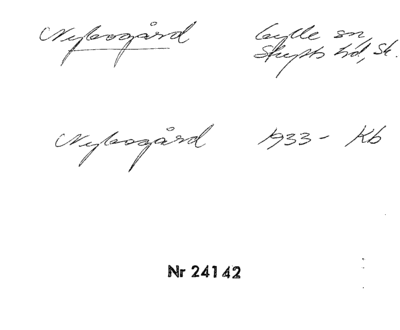 Nybogård Gylle sn,
Skytts hd, Sk.
Nybogård 1933- Kb
Nr 24142